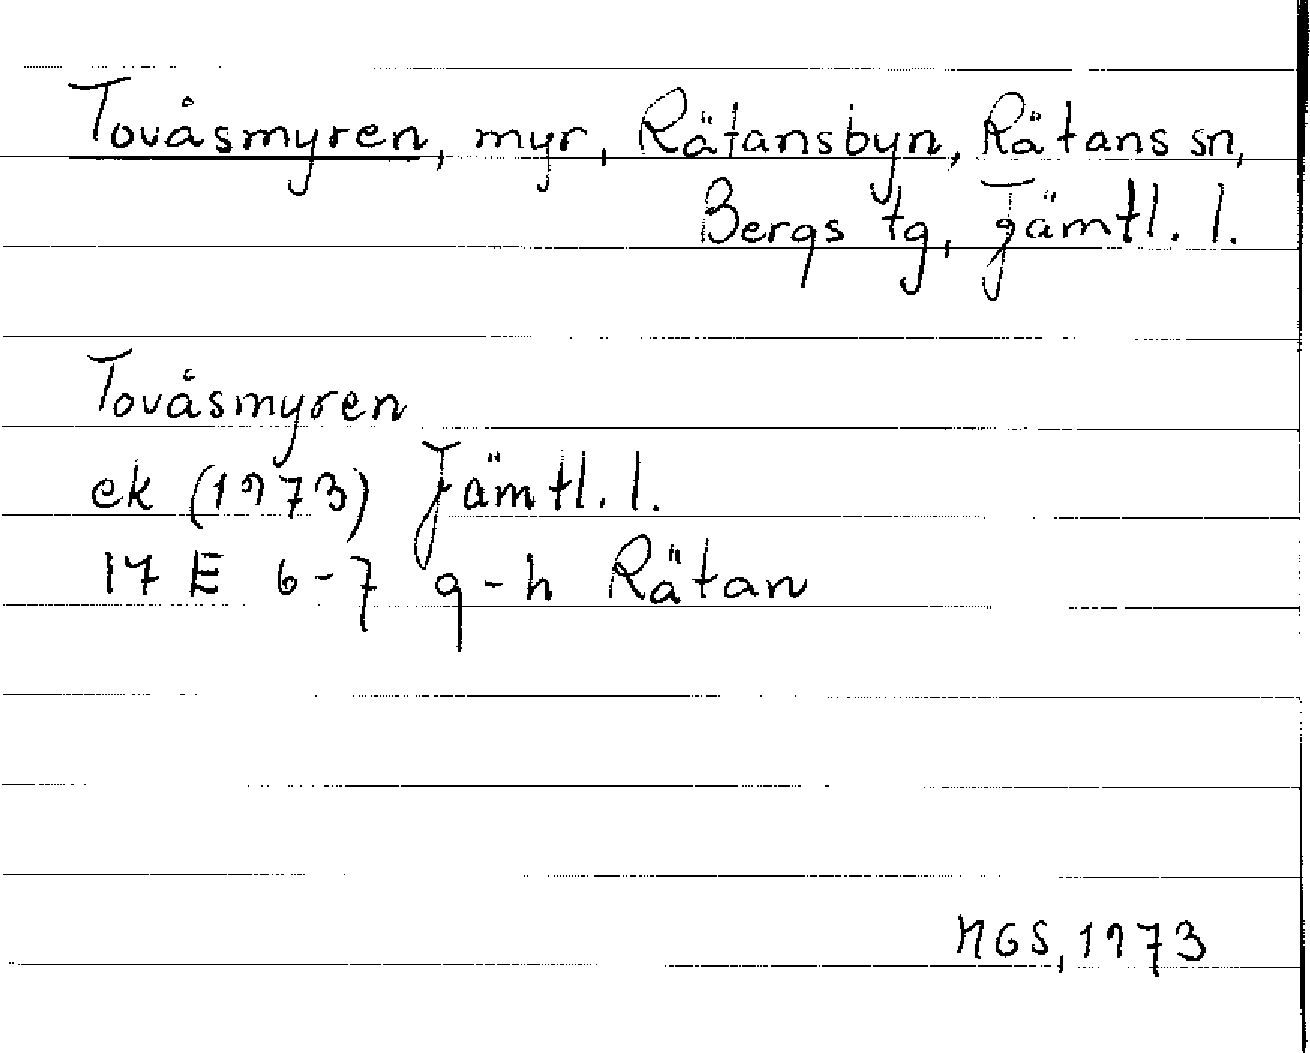 Tovåsmyren, myr, Rätansbyn, Rätans sn,
Bergs tg, Jämtl. l.
Tovåsmyren
ek (1973) Jämtl. l.
17 E 6-7 g-h Rätan
NGS, 1973